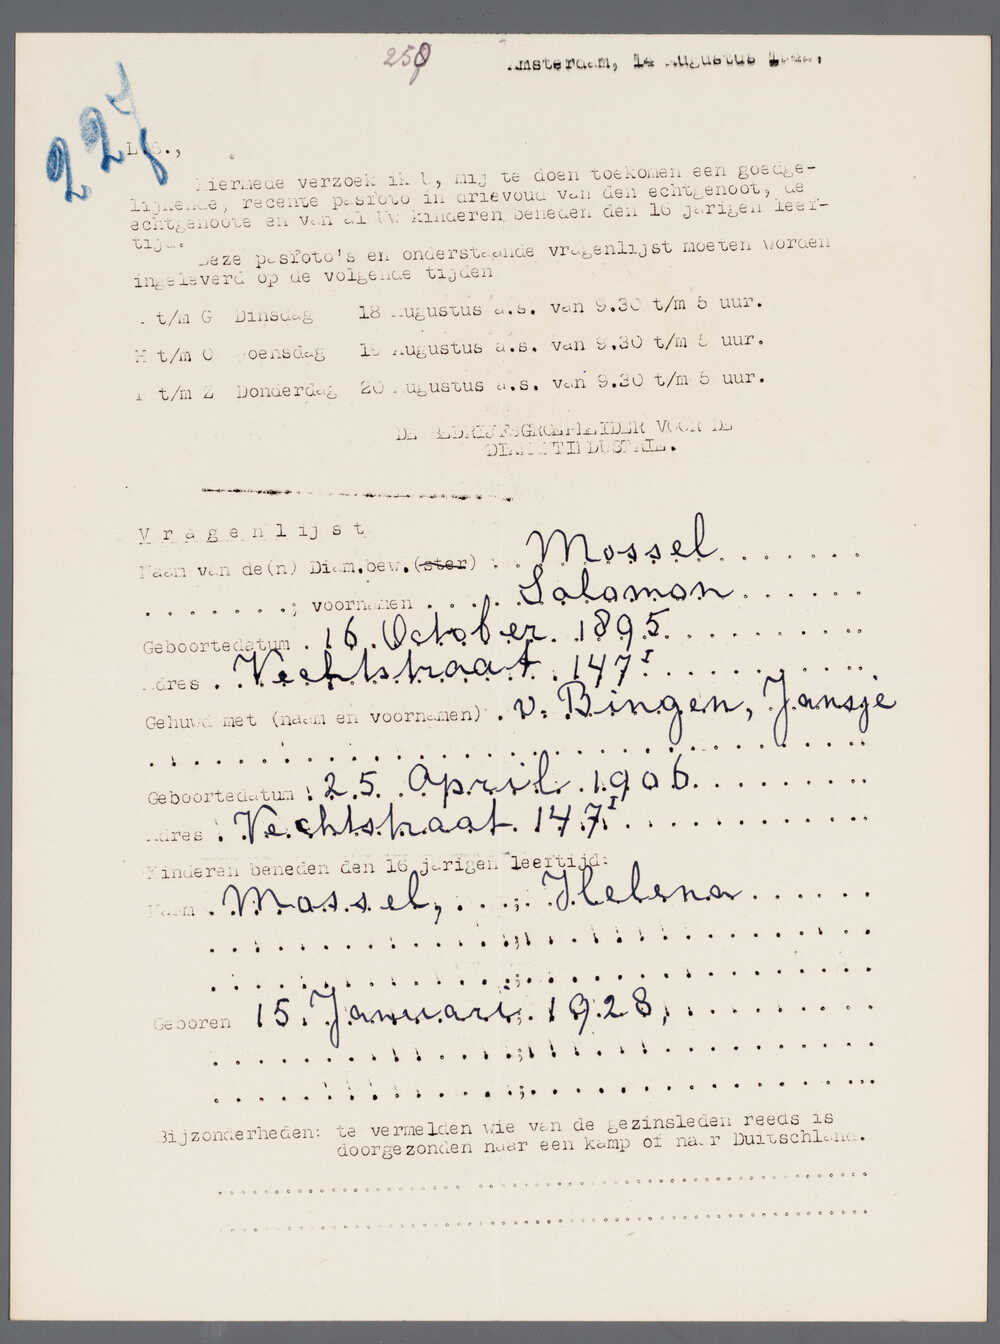 258
Amsterdam, 14 Augustus 1942.
227
L.S.,
Hiermede verzoek ik U, mij te doen toekomen een goedge-
lijkende, recente pasfoto in drievoud van den echtgenoot, de
echtgenoote en van al Uw kinderen beneden den 16 jarigen leef-
tijd.
Deze pasfoto's en onderstaande vragenlijst moeten worden
ingeleverd op de volgende tijden
A t/m G Dinsdag 18 Augustus a.s. van 9.30 t/m 5 uur.
H t/m O Woensdag 19 Augustus a.s. van 9.30 t/m 5 uur.
P t/m Z Donderdag 20 Augustus a.s. van 9.30 t/m 5 uur.
DE BEDRIJFSGROEPLEIDER VOOR DE
DIAMANTINDUSTRIE.
V r a g e n l i j s t
Naam van de(n) Diam.bew.(ster) : Mossel
; voornamen Salomon
Geboortedatum 16 October 1895
Adres Vechtstraat 147 I
Gehuwd met (naam en voornamen) v. Bingen, Jansje
Geboortedatum : 25 April 1906
Adres : Vechtstraat 147 I
Kinderen beneden den 16 jarigen leeftijd:
Naam Mossel, ; Helena
Geboren 15 Januari 1928,
Bijzonderheden: te vermelden wie van de gezinsleden reeds is
doorgezonden naar een kamp of naar Duitschland.